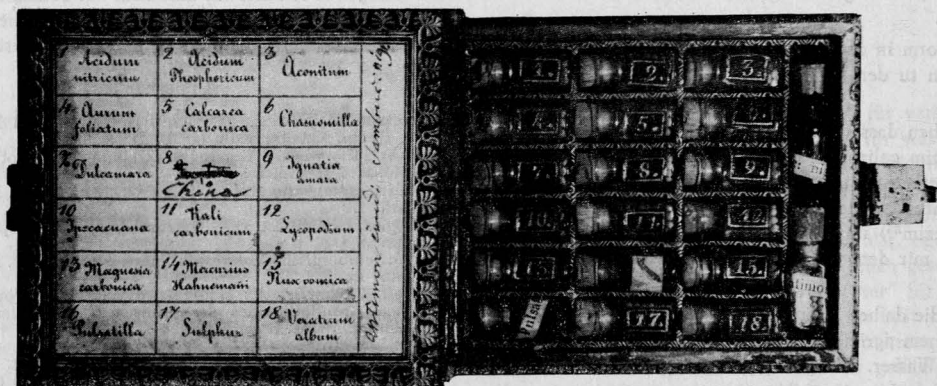 1 Acidum
nitricum
2 Acidum
Phosphoricum
3 Aconitum
4 Aurum
foliatum
5 Calcarea
carbonica
6 Chamomilla
7 Dulcamara
8
China
9 Ignatia
amara
10
Ipecacuana
11 Kali
carbonicum
12
Lycopodium
13 Magnesia
carbonica
14 Mercurius
Hahnemani
15
Nux vomica
16
Pulsatilla
17
Sulphur
18 Veratrum
album
Antimon
1.
2.
3.
4.
5.
6.
7.
8.
9.
10.
11.
12.
13.
15.
17.
18.